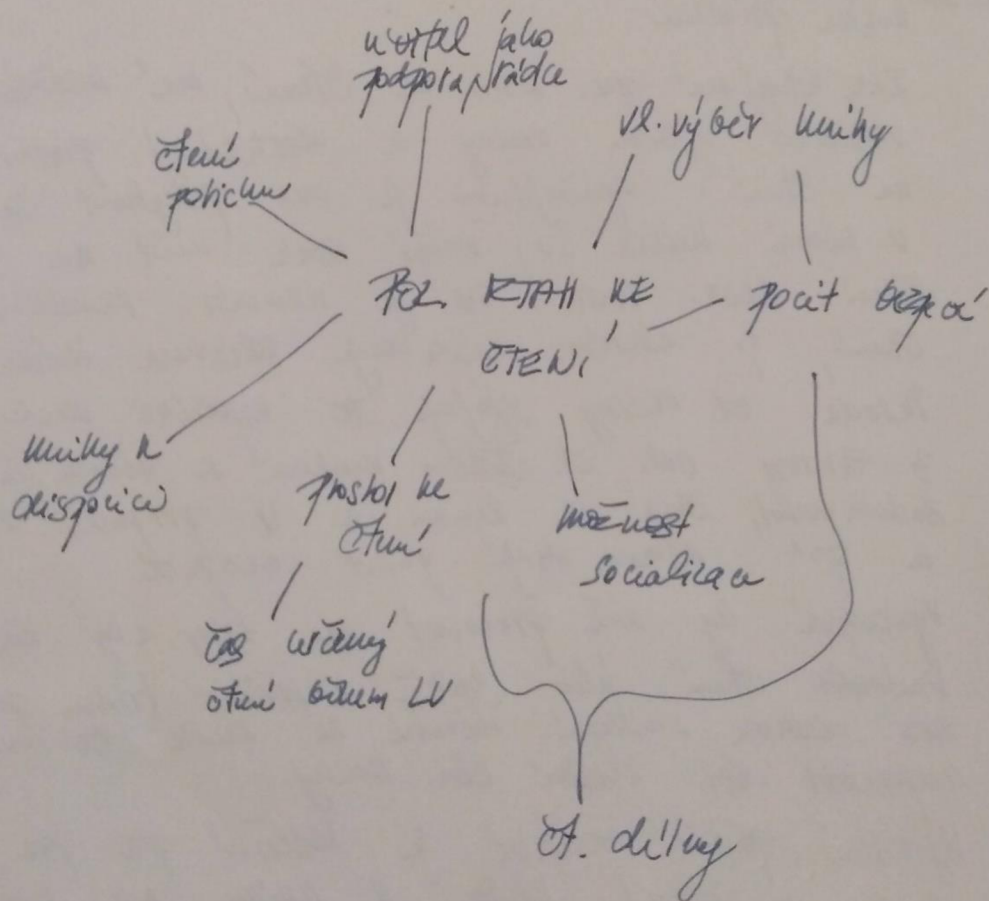 učitel jako
podpora, rádce
vl. výběr knihy
čtení
potichu
POZ. VZTAH KE
ČTENÍ
pocit bezpečí
knihy k
dispozici
prostor ke
čtení
možnost
socializace
čas určený
čtení během LV
čt. dílny